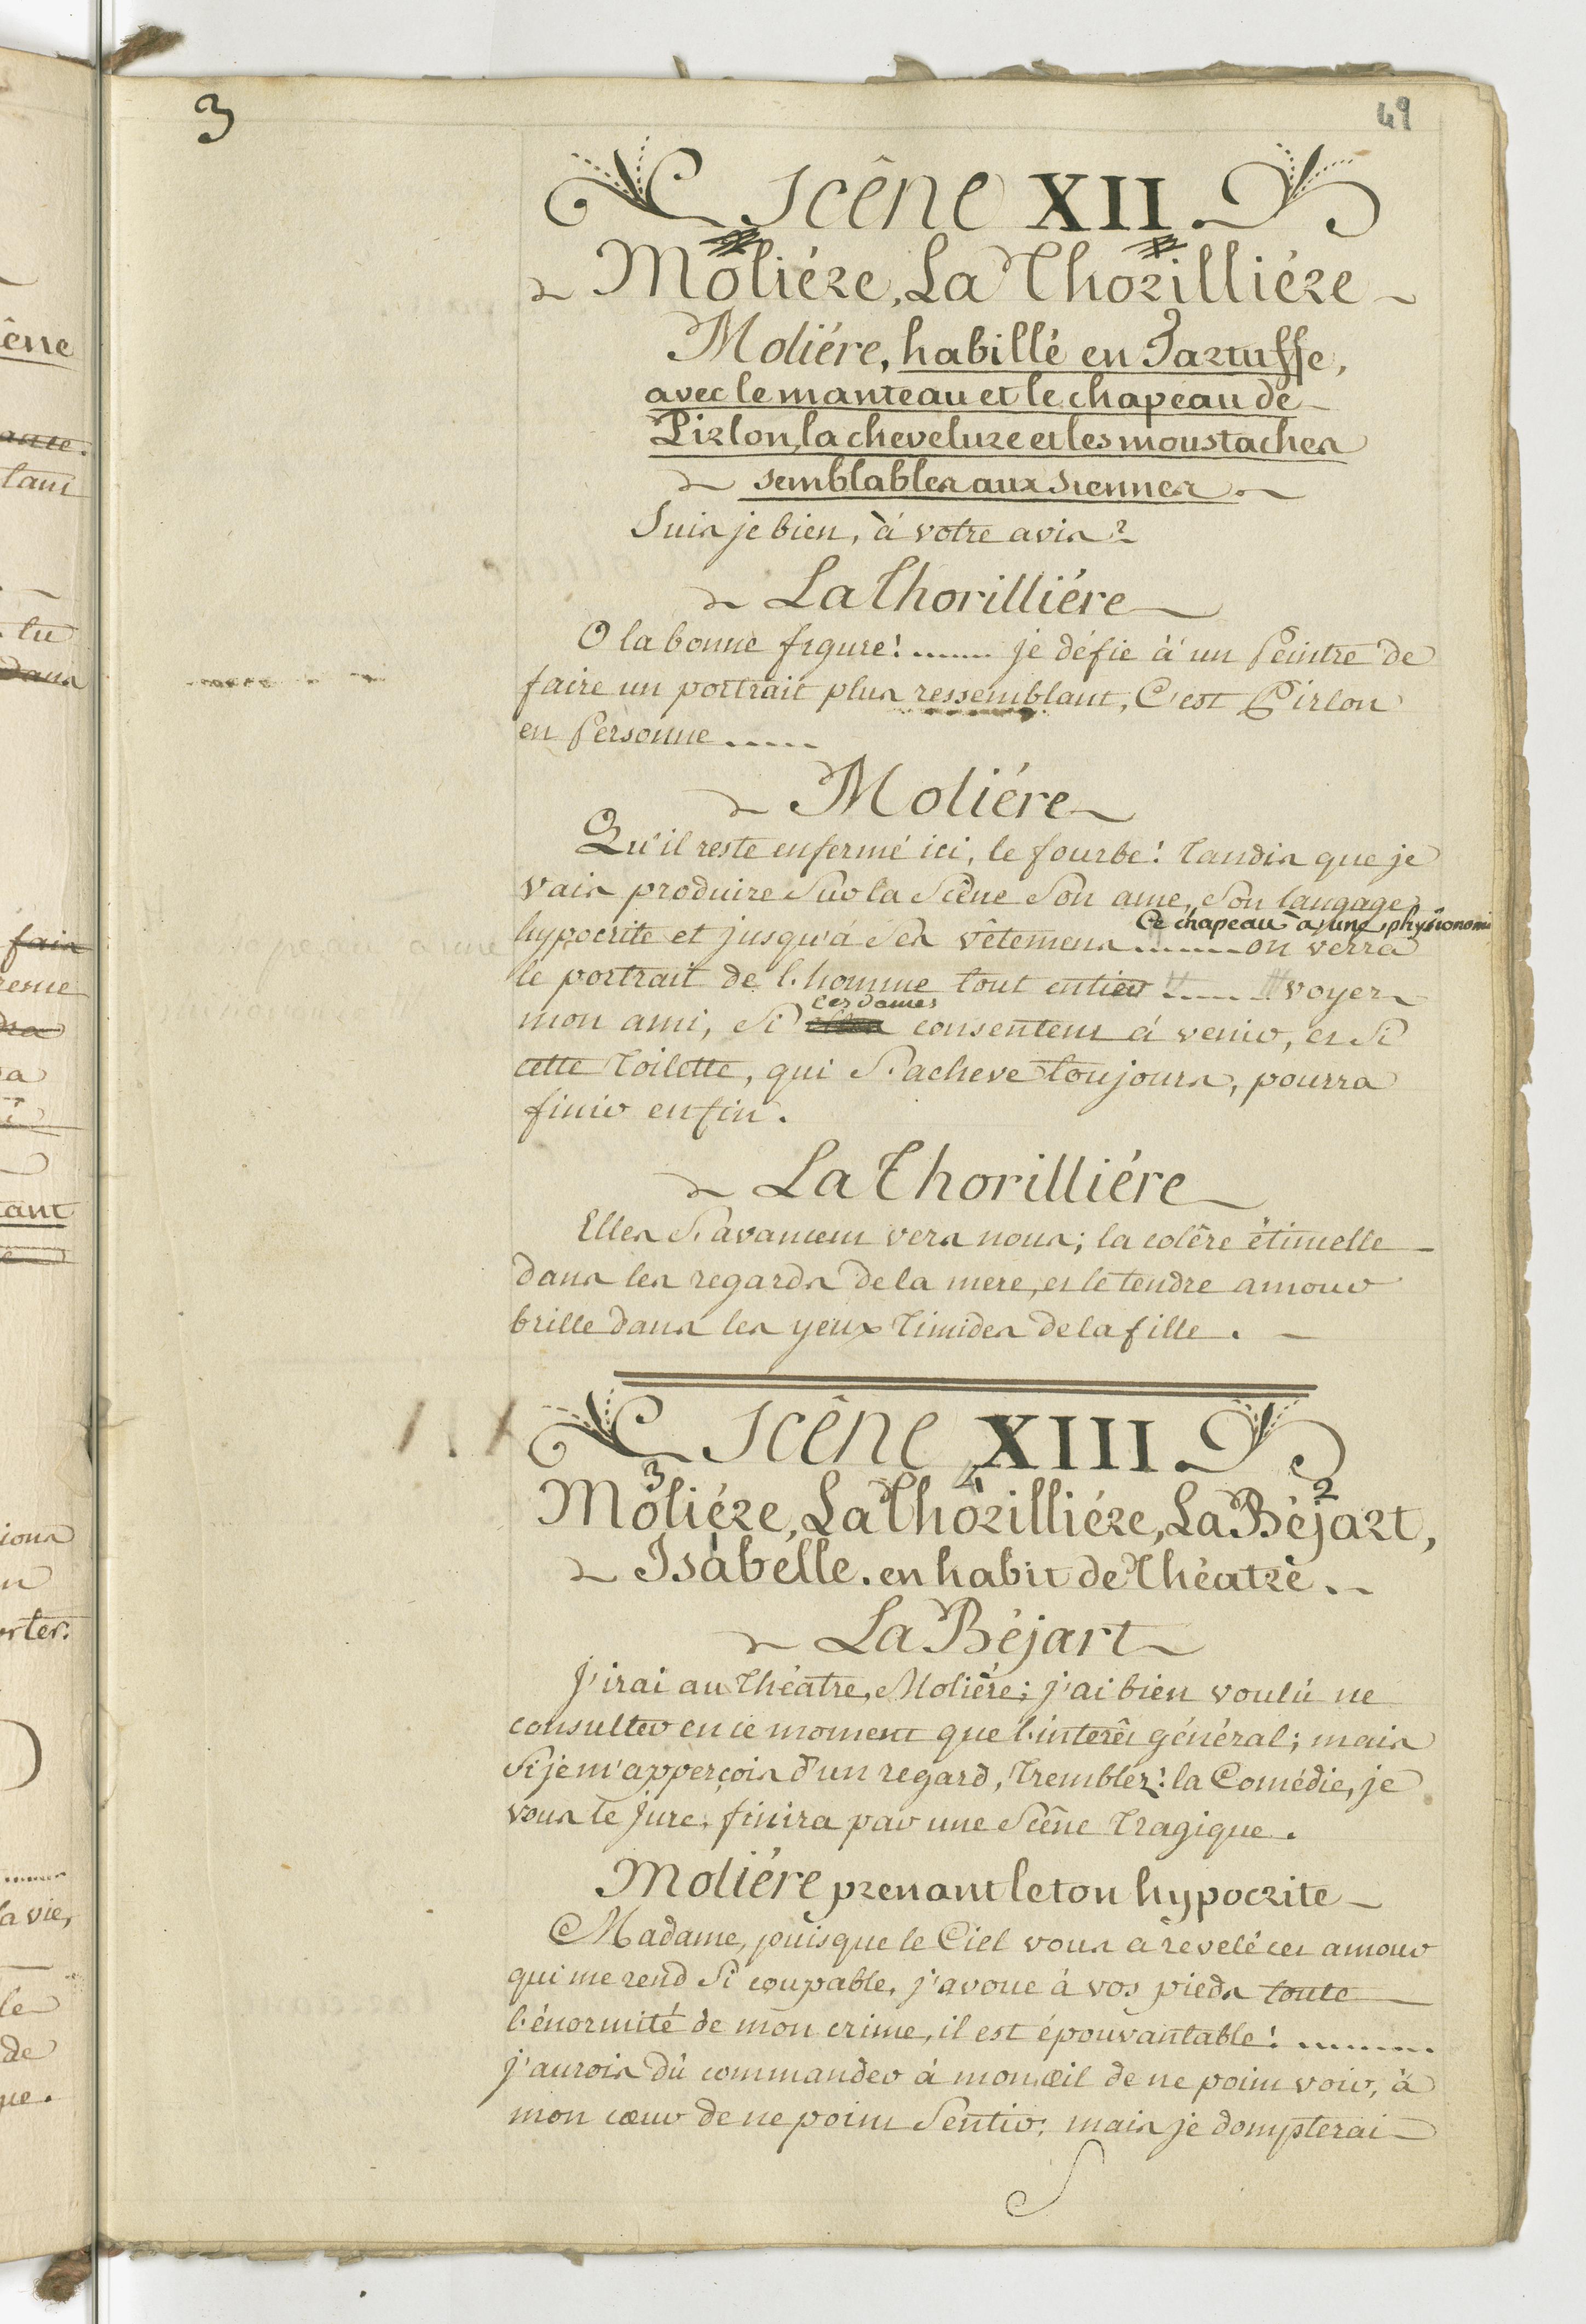 3
49
Scêne XII.
Moliére, La Thorilliére
Moliére, habillé en Tartuffe,
avec le manteau et le chapeau de
Pirlon, la chevelure et les moustaches
semblables aux siennes.
Suis je bien, à votre avis?
La Thorilliére
O la bonne figure! ....... je défie à un Peintre de
faire un portrait plus ressemblant, C'est Pirlon
en Personne .....
Moliére
Qu'il reste enfermé ici, le fourbe! tandis que je
vais produire Sur la Scêne Son ame, Son langage
Ce chapeau à une phyïionomie
hypocrite et jusqu'á Ses vêtemens ........ on verra
le portrait de l'homme tout entier !...... voyez
ces dames
mon ami, Si elles consentent á venir, et Si
cette toilette, qui S'acheve toujours, pourra
finir enfin.
La Thorilliére
Elles S'avancent vers nous; la colêre étincelle
dans les regards de la mere, et le tendre amour
brille dans les yeux timides de la fille.
Scêne XIII.
3 4 2
Moliére, La Thorilliére, La Béjart,
Isabélle. en habit de Théatre.
La Béjart
J'irai au Théatre, Moliére; j'ai bien voulû ne
consulter en ce moment que l'interêt général; mais
Si je m'apperçois d'un regard, tremblez! la Comédie, je
vous le jure, finira par une Scêne tragique.
Moliére prenant le ton hypocrite
Madame, puisque le Ciel vous a revelé cet amour
qui me rend Si coupable, j'avoue à vos pieds toute
l'énormité de mon crime, il est épouvantable! ........
j'aurois dû commander á mon œil de ne point voir, à
mon cœur de ne point Sentir; mais je dompterai